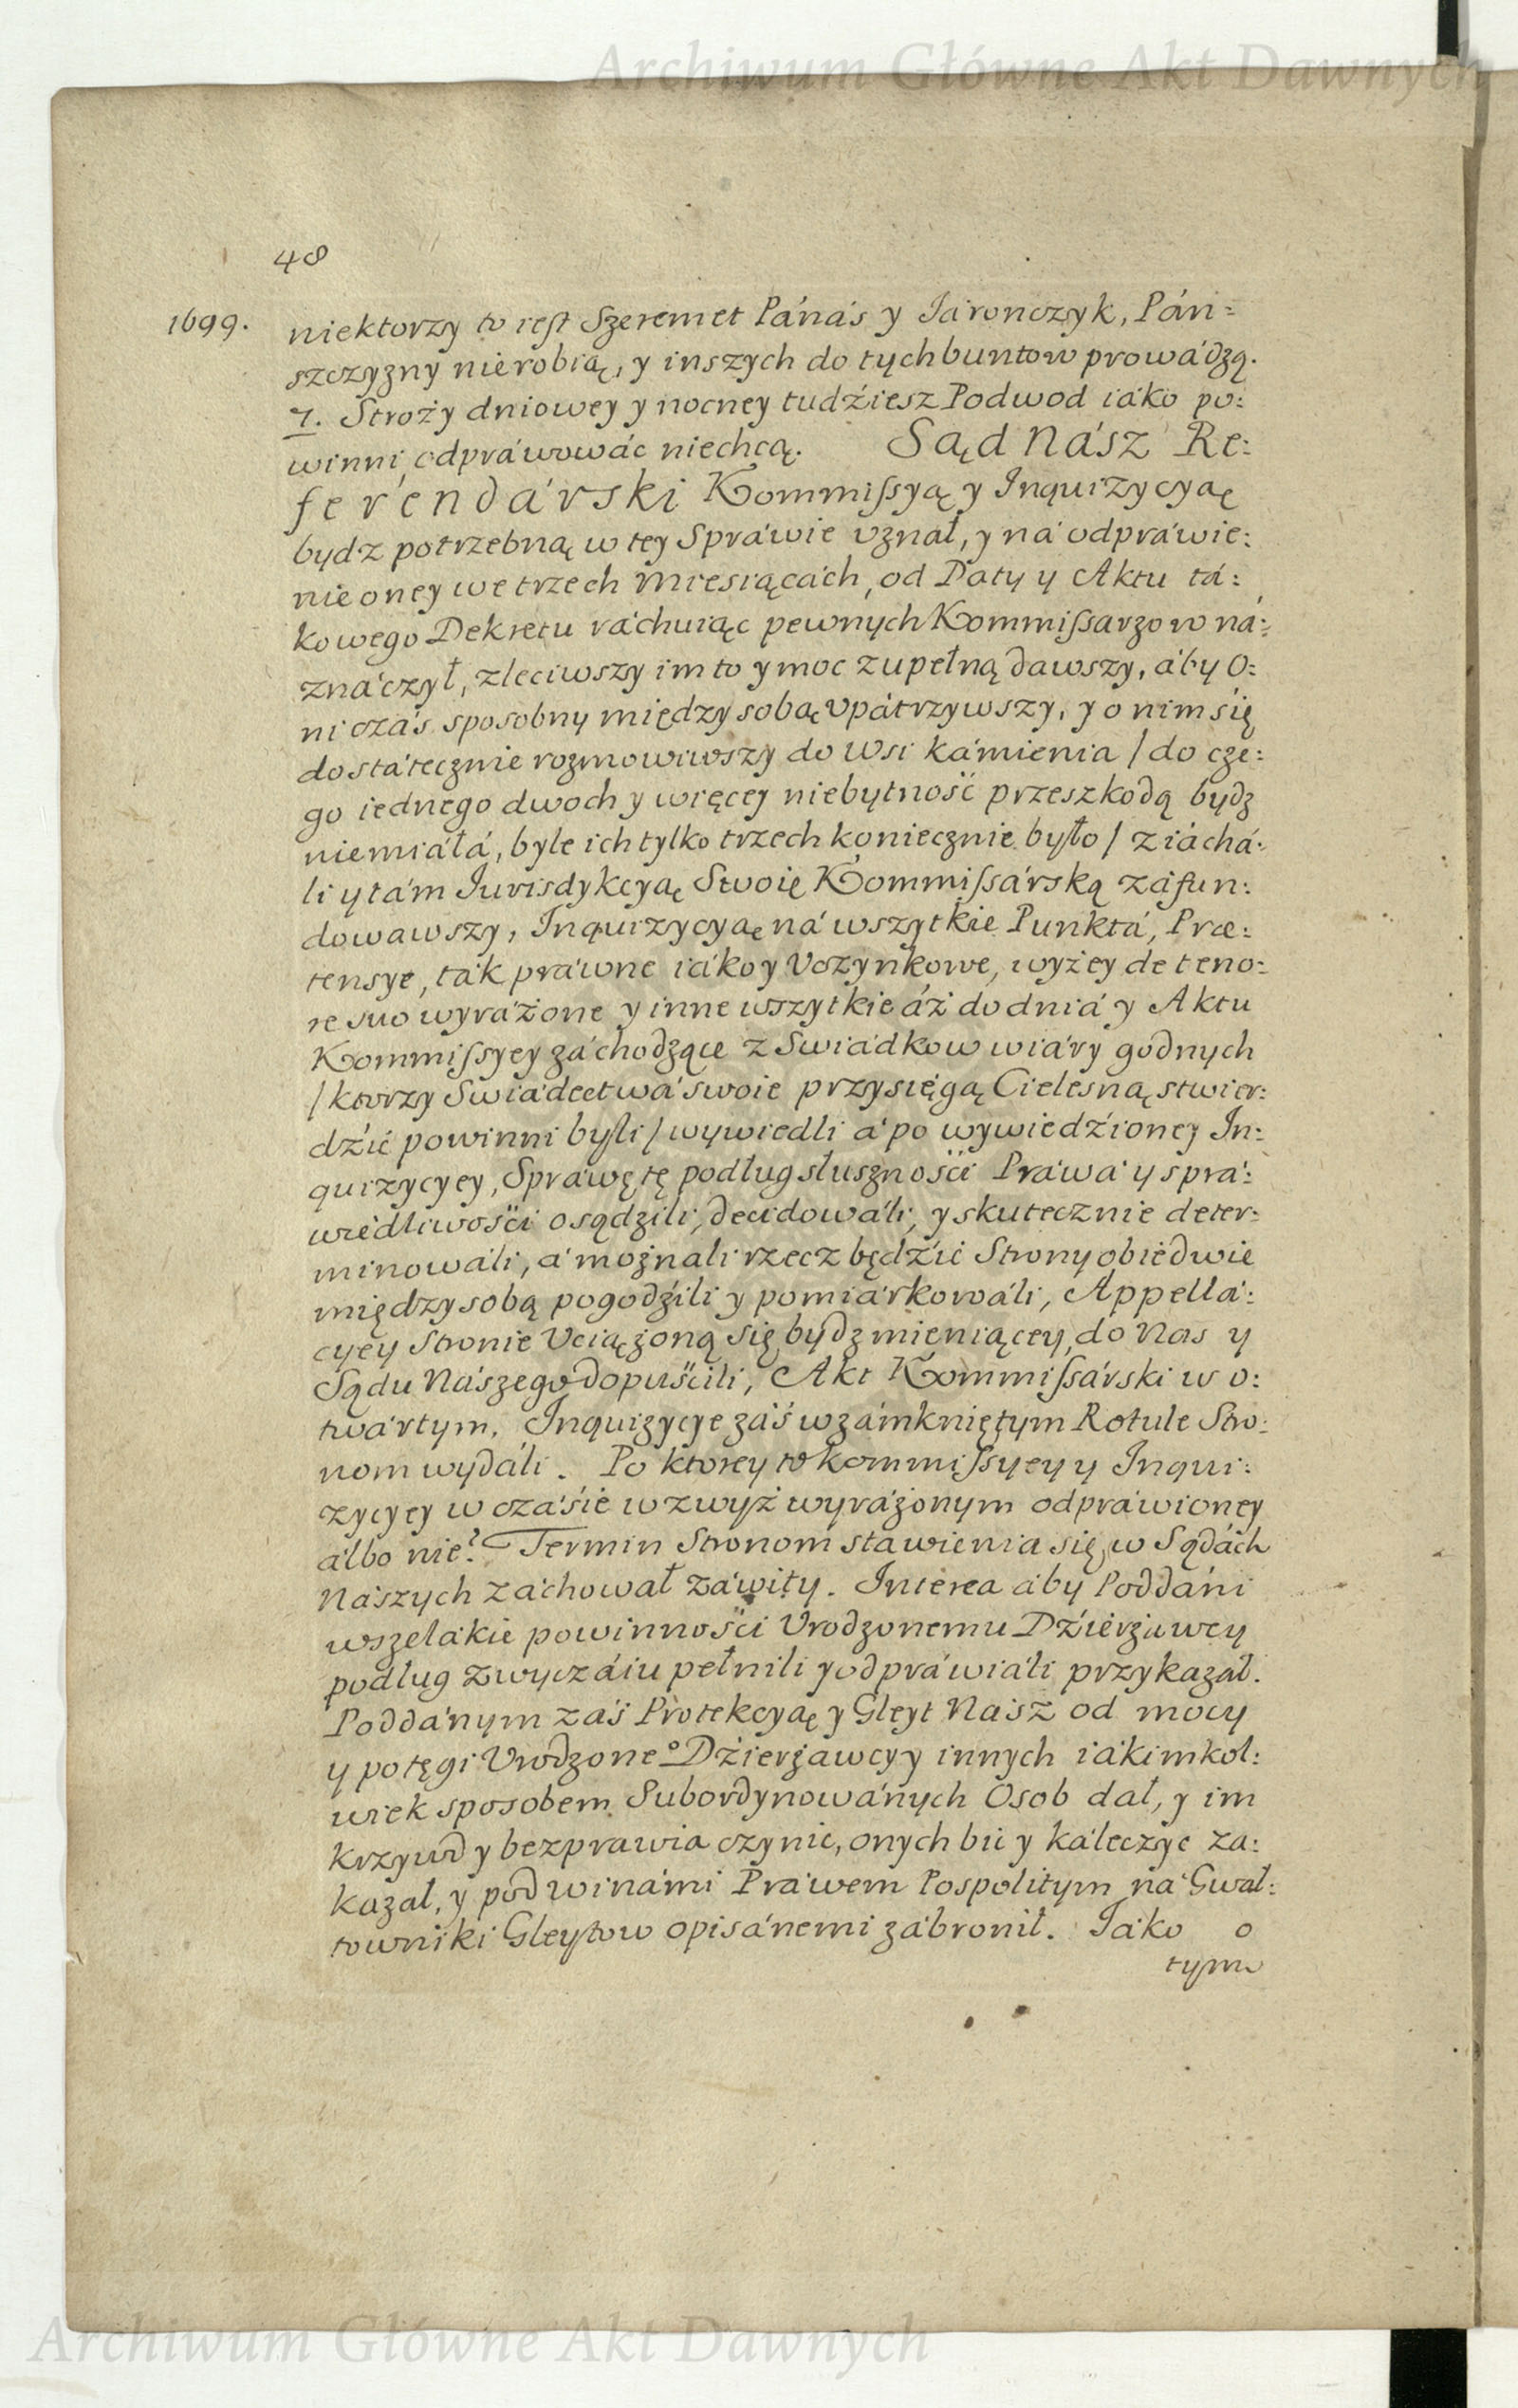 Archiwum Główne Akt Dawnych
48
1699.
niektorzy to iest Szeremet Pánás y Iáronczyk, Pán=
szczyzny nierobią, y inszych do tych buntow prowádzą.
7. Stroży dniowey y nocney tudźiesz Podwod iáko po:
winni odpráwowác niechcą. Sąd Nász Re:
ferendárski Kommissyą y Inquizycyą
bydz potrzebną w tey Spráwie vznał, y ná odpráwie:
nie oney we trzech Miesiącách, od Daty y Aktu tá:
kowego Dekretu ráchuiąc pewnych Kommissarzow ná:
znáczył, zleciwszy im to y moc zupełną dawszy, áby O:
ni czás sposobny między sobą vpátrzywszy, y o nim się
dostátecznie rozmowiwszy do Wsi Kámienia / do cze:
go iednego dwoch y więcey niebytność przeszkodą bydz
niemiáłá, byle ich tylko trzech koniecznie było / ziáchá:
li y tám Iurisdykcyą Swoię Kommissárską záfun:
dowawszy, Inquizycyą ná wszytkie Punktá, Præ:
tensye, ták práwne iáko y Vczynkowe, wyżey de teno:
re suo wyráżone y inne wszytkie áż do dniá y Aktu
Kommissyey záchodzące z Swiádkow wiáry godnych
/ ktorzy Swiádectwá swoie przysięgą Cielesną stwier:
dźić powinni byli / wywiedli á po wywiedźioney In:
quizycyey, Spráwę tę podług słuszności Práwá y sprá:
wiedliwości osądzili, decidowáli, y skutecznie deter:
minowáli, á możnali rzecz będźie Strony obiedwie
między sobą pogodźili y pomiárkowáli, Appellá:
cyey Stronie Vciążoną się bydz mieniącey, do Nas y
Sądu Nászego dopuścili, Akt Kommissárski w o:
twártym, Inquizycye záś w zámkniętym Rotule Stro:
nom wydáli. Po ktorey to Kommissyey y Inqui:
zycyey w czáśie wzwyż wyráżonym odpráwioney
álbo nie? Termin Stronom stawienia się w Sądách
Nászych záchował záwity. Interea áby Poddáni
wszelákie powinności Vrodzonemu Dźierżawcy
podług zwyczáiu pełnili y odpráwiáli przykazał.
Poddánym záś Protekcyą y Gleyt Nász od mocy
y potęgi Vrodzoneº Dźierżawcy y innych iákimkol:
wiek sposobem Subordynowánych Osob dał, y im
krzywd y bezprawia czynic, onych bić y káleczyc zá:
kazał, y pod winámi Práwem Pospolitym ná Gwał:
towniki Gleytow opisánemi zábronił. Iáko o
tym
Archiwum Główne Akt Dawnych